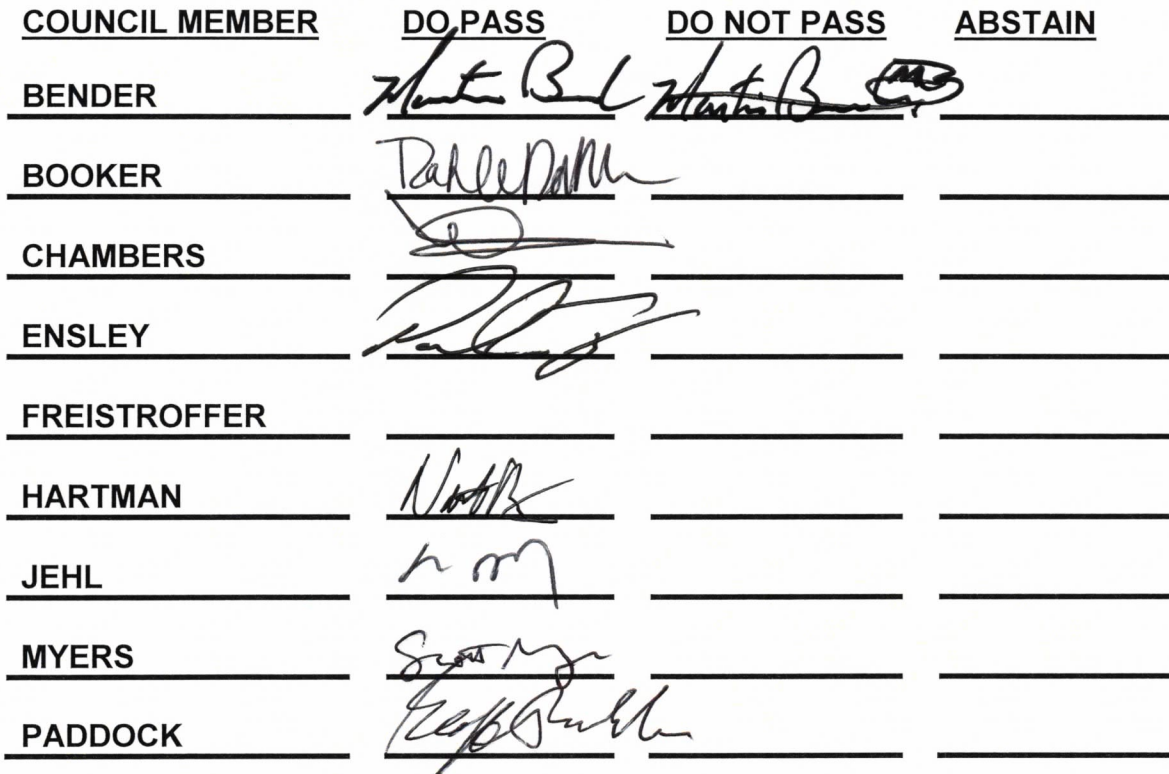 COUNCIL MEMBER DO PASS DO NOT PASS ABSTAIN
BENDER Martin Bend Martin MB
BOOKER
CHAMBERS
ENSLEY
FREISTROFFER
HARTMAN
JEHL
MYERS Scott
PADDOCK Geoff Paddock